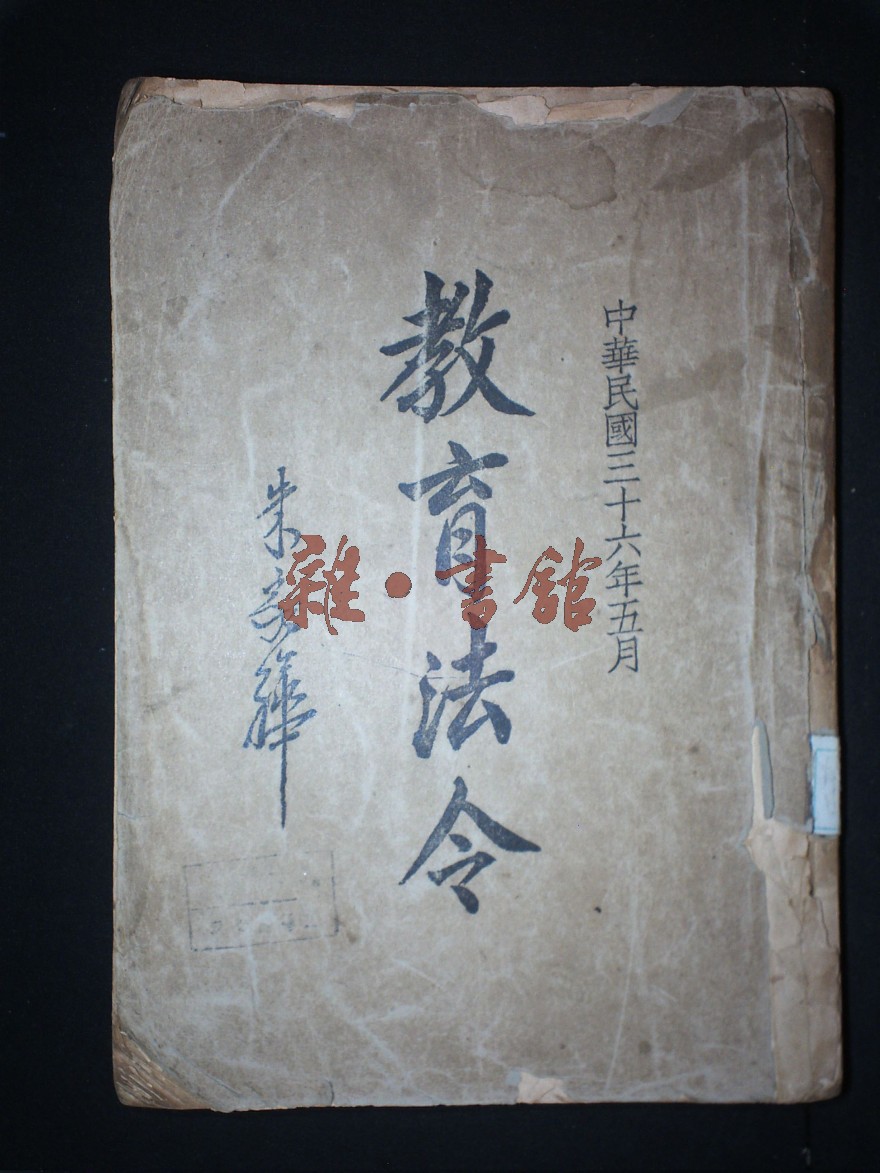 中華民國三十六年五月
教育法令
朱家驊
雜·書館